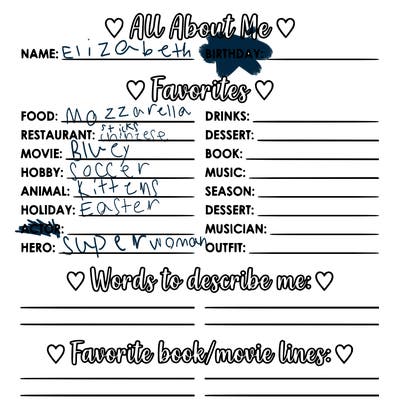 ♡ All About Me ♡
NAME: Elizabeth BIRTHDAY:
♡ Favorites ♡
FOOD: Mozzarella sticks DRINKS:
RESTAURANT: chinese DESSERT:
MOVIE: Bluey BOOK:
HOBBY: soccer MUSIC:
ANIMAL: kittens SEASON:
HOLIDAY: Easter DESSERT:
ACTOR: MUSICIAN:
HERO: superwoman OUTFIT:
♡ Words to describe me: ♡
♡ Favorite book/movie lines: ♡